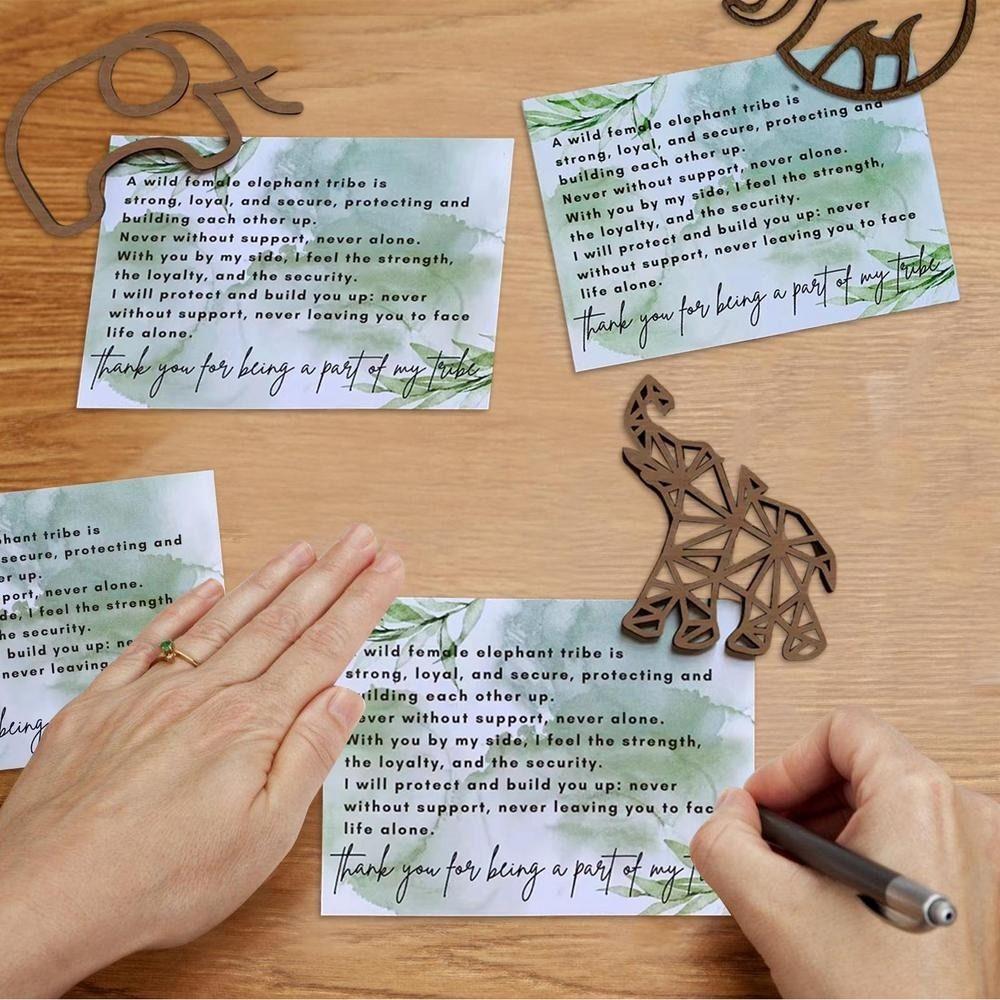 A wild female elephant tribe is
strong, loyal, and secure, protecting and
building each other up.
Never without support, never alone.
With you by my side, I feel the strength,
the loyalty, and the security.
I will protect and build you up: never
without support, never leaving you to face
life alone.
thank you for being a part of my tribe
A wild female elephant tribe is
strong, loyal, and secure, protecting and
building each other up.
Never without support, never alone.
With you by my side, I feel the strength,
the loyalty, and the security.
I will protect and build you up: never
without support, never leaving you to face
life alone.
thank you for being a part of my tribe
hant tribe is
secure, protecting and
er up.
port, never alone.
de, I feel the strength
he security.
build you up: ne
never leaving
being
wild female elephant tribe is
strong, loyal, and secure, protecting and
uilding each other up.
ever without support, never alone.
With you by my side, I feel the strength,
the loyalty, and the security.
I will protect and build you up: never
without support, never leaving you to fac
life alone.
thank you for being a part of my t